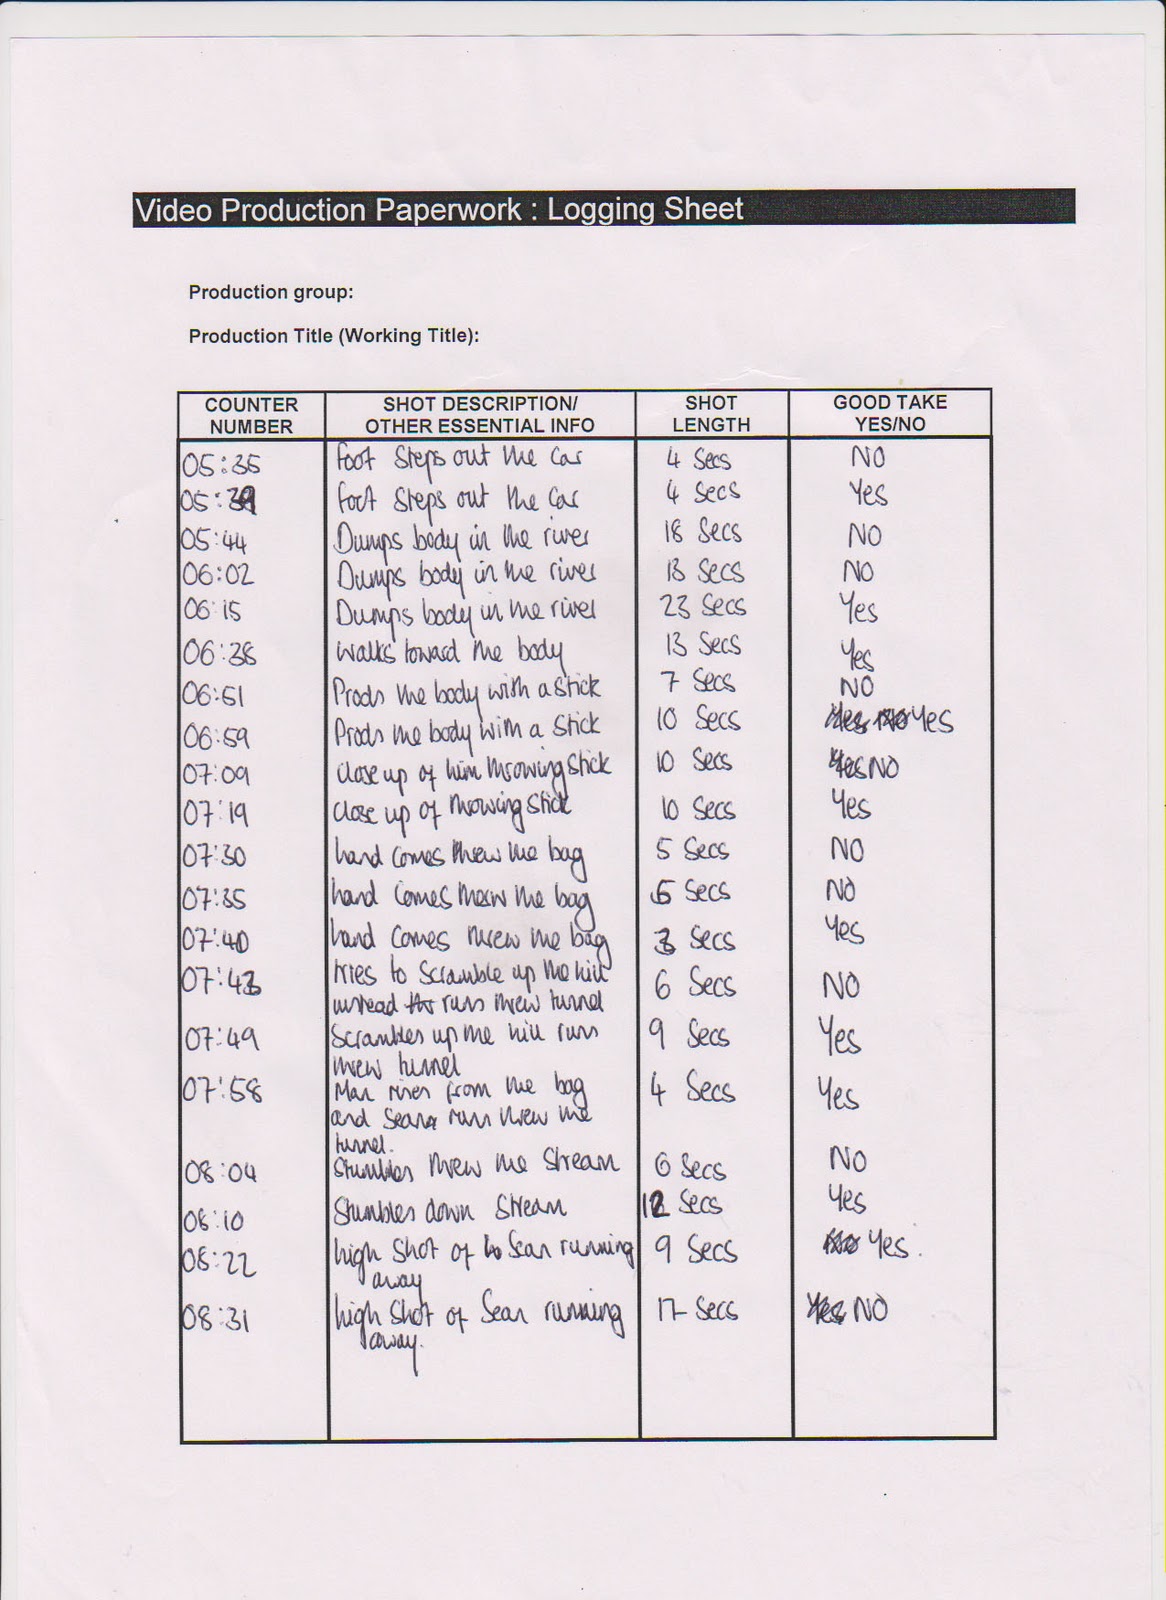 Video Production Paperwork : Logging Sheet
Production group:
Production Title (Working Title):
COUNTER NUMBER SHOT DESCRIPTION/ OTHER ESSENTIAL INFO SHOT LENGTH GOOD TAKE YES/NO
05:35 foot steps out the car 4 secs NO
05:39 foot steps out the car 4 secs Yes
05:44 Dumps body in the river 18 secs NO
06:02 Dumps body in the river 13 secs NO
06:15 Dumps body in the river 23 secs Yes
06:38 walks toward the body 13 secs Yes
06:51 Prods the body with a stick 7 secs NO
06:59 Prods the body with a stick 10 secs Yes NO Yes
07:09 close up of him throwing stick 10 secs Yes NO
07:19 close up of throwing stick 10 secs Yes
07:30 hand comes threw the bag 5 secs NO
07:35 hand comes threw the bag 5 secs NO
07:40 hand comes threw the bag 3 secs Yes
07:43 tries to scramble up the hill 6 secs NO
instead runs threw tunnel
07:49 Scrambles up the hill runs 9 secs Yes
threw tunnel
07:58 Man rises from the bag 4 secs Yes
and Sean runs threw the
tunnel.
08:04 Stumbles threw the stream 6 secs NO
08:10 Stumbles down stream 12 secs Yes
08:22 high shot of Sean running 9 secs NO Yes.
away
08:31 high shot of Sean running 17 secs Yes NO
away.